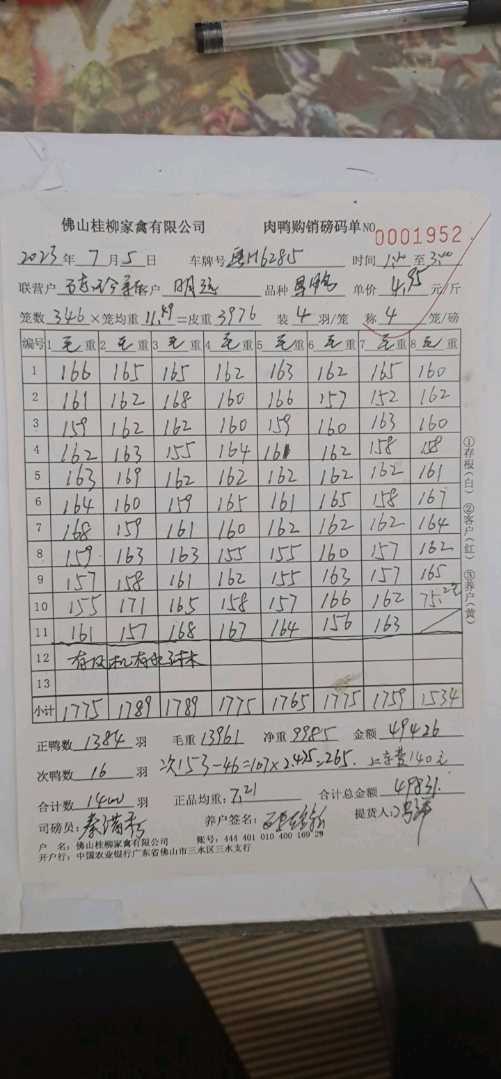 佛山桂柳家禽有限公司 肉鸭购销磅码单 NO 0001952
2023 年 7 月 5 日 车牌号 粤H62815 时间 至 3:00
联营户 客户 明远 品种 单价 4.95 元/斤
笼数 346 ×笼均重 11.49 =皮重 3976 装 4 羽/笼 称 4 笼/磅
编号 1 毛 重 2 毛 重 3 毛 重 4 毛 重 5 毛 重 6 毛 重 7 毛 重 8 毛 重
1 166 165 165 162 163 162 165 160
2 161 162 168 160 166 157 152 162
3 159 162 162 160 159 160 163 160
4 162 163 155 164 161 162 158 158
5 163 169 162 162 162 162 162 161
6 164 160 159 165 161 165 158 167
7 168 159 161 160 162 162 162 164
8 159 163 163 155 155 160 157 162
9 157 158 161 162 155 163 157 165
10 155 171 165 158 157 166 162 75.2
11 161 157 168 167 164 156 163
12
13
小计 1775 1789 1789 1775 1765 1775 1759 1534
①存根(白) ②客户(红) ③养户(黄)
正鸭数 1384 羽 毛重 13961 净重 9985 金额 49426
次鸭数 16 羽 次153-46=107×2.475=265. 140元
合计数 1400 羽 正品均重: 7.21 合计总金额 49831.
司磅员: 养户签名: 提货人:
户 名: 佛山桂柳家禽有限公司 账号: 444 401 010 400 169 29
开户行: 中国农业银行广东省佛山市三水区三水支行